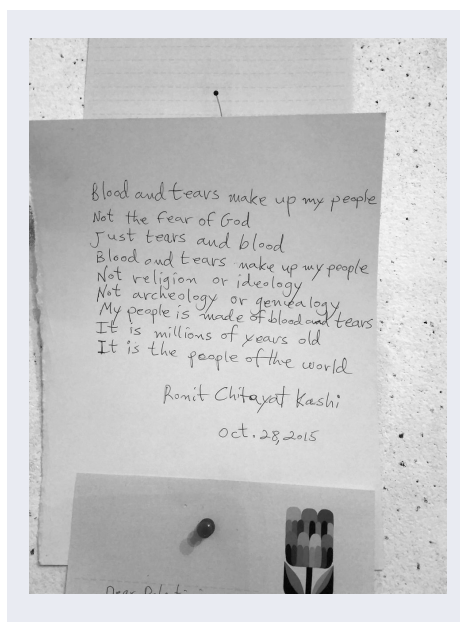 Blood and tears make up my people
Not the fear of God
Just tears and blood
Blood and tears make up my people
Not religion or ideology
Not archeology or genealogy
My people is made of blood and tears
It is millions of years old
It is the people of the world
Ronit Chitayat Kashi
Oct. 28, 2015
Dear